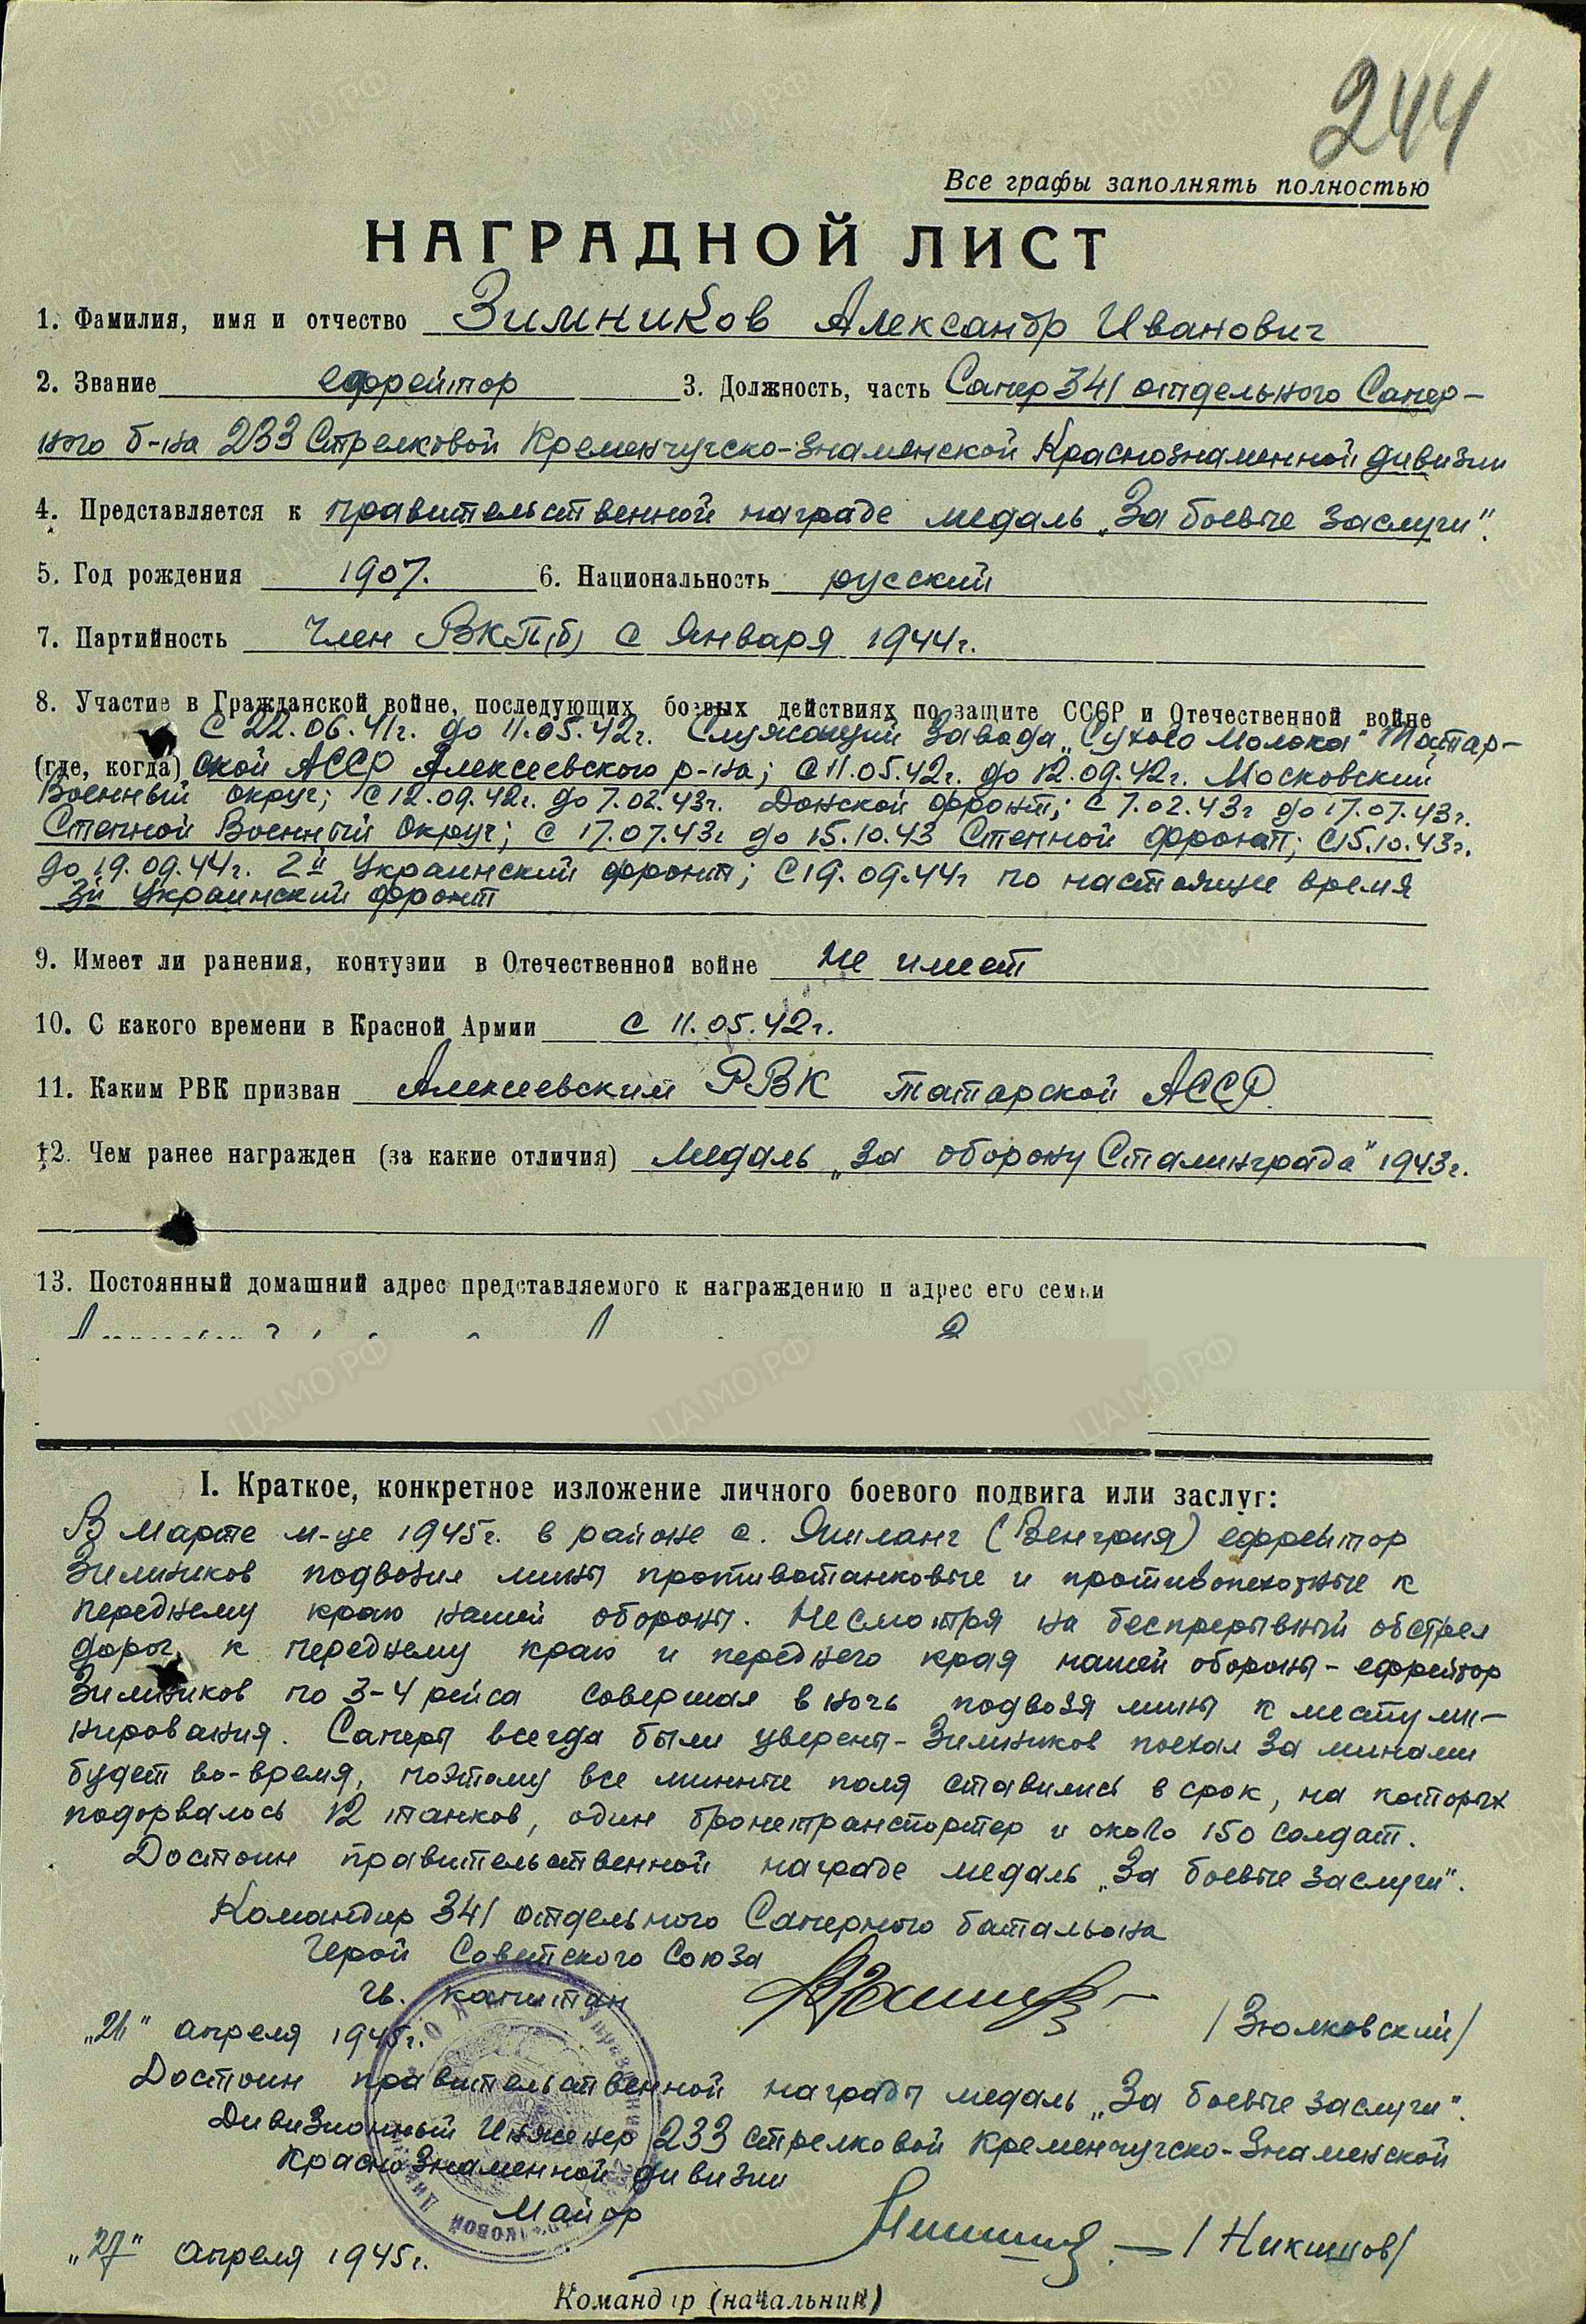 244
Все графы заполнять полностью
НАГРАДНОЙ ЛИСТ
1. Фамилия, имя и отчество Зимников Александр Иванович
2. Звание ефрейтор 3. Должность, часть Сапер 341 отдельного Сапер-
ного б-на 233 Стрелковой Кременчугско-Знаменской Краснознаменной дивизии
4. Представляется к правительственной награде медаль „За боевые заслуги".
5. Год рождения 1907. 6. Национальность русский
7. Партийность Член ВКП(б) с Января 1944г.
8. Участие в Гражданской войне, последующих боевых действиях по защите СССР и Отечественной войне
С 22.06.41г. до 11.05.42г. Служащий Завода „Сухого Молока" Татар-
(где, когда) ской АССР Алексеевского р-на; С 11.05.42г. до 12.09.42г. Московский
Военный округ; С 12.09.42г. до 7.02.43г. Донской фронт; С 7.02.43г до 17.07.43г.
Степной Военный Округ; С 17.07.43г до 15.10.43 Степной фронт; С 15.10.43г.
до 19.09.44г. 2й Украинский фронт; С 19.09.44г по настоящее время
3й Украинский фронт
9. Имеет ли ранения, контузии в Отечественной войне не имеет
10. С какого времени в Красной Армии С 11.05.42г.
11. Каким РВК призван Алексеевским РВК Татарской АССР.
12. Чем ранее награжден (за какие отличия) Медаль „За оборону Сталинграда" 1943г.
13. Постоянный домашний адрес представляемого к награждению и адрес его семьи
I. Краткое, конкретное изложение личного боевого подвига или заслуг:
В Марте м-це 1945г. в районе с. Яниланг (Венгрия) ефрейтор
Зимников подвозил мины противотанковые и противопехотные к
переднему краю нашей обороны. Несмотря на беспрерывный обстрел
дорог, к переднему краю и переднего края нашей обороны - ефрейтор
Зимников по 3-4 рейса совершал в ночь подвозя мины к месту ми-
нирования. Саперы всегда были уверены - Зимников поехал за минами
будет во-время, поэтому все минные поля ставились в срок, на которых
подорвалось 12 танков, один бронетранспортер и около 150 солдат.
Достоин правительственной награде медаль „За боевые заслуги".
Командир 341 отдельного Саперного батальона
Герой Советского Союза
гв. капитан /Зюлковский/
„21" апреля 1945г.
Достоин правительственной награды медаль „За боевые заслуги".
Дивизионный Инженер 233 стрелковой Кременчугско-Знаменской
Краснознаменной дивизии
Майор /Никишов/
„27" апреля 1945г.
Командир (начальник)
ЦАМО.РФ